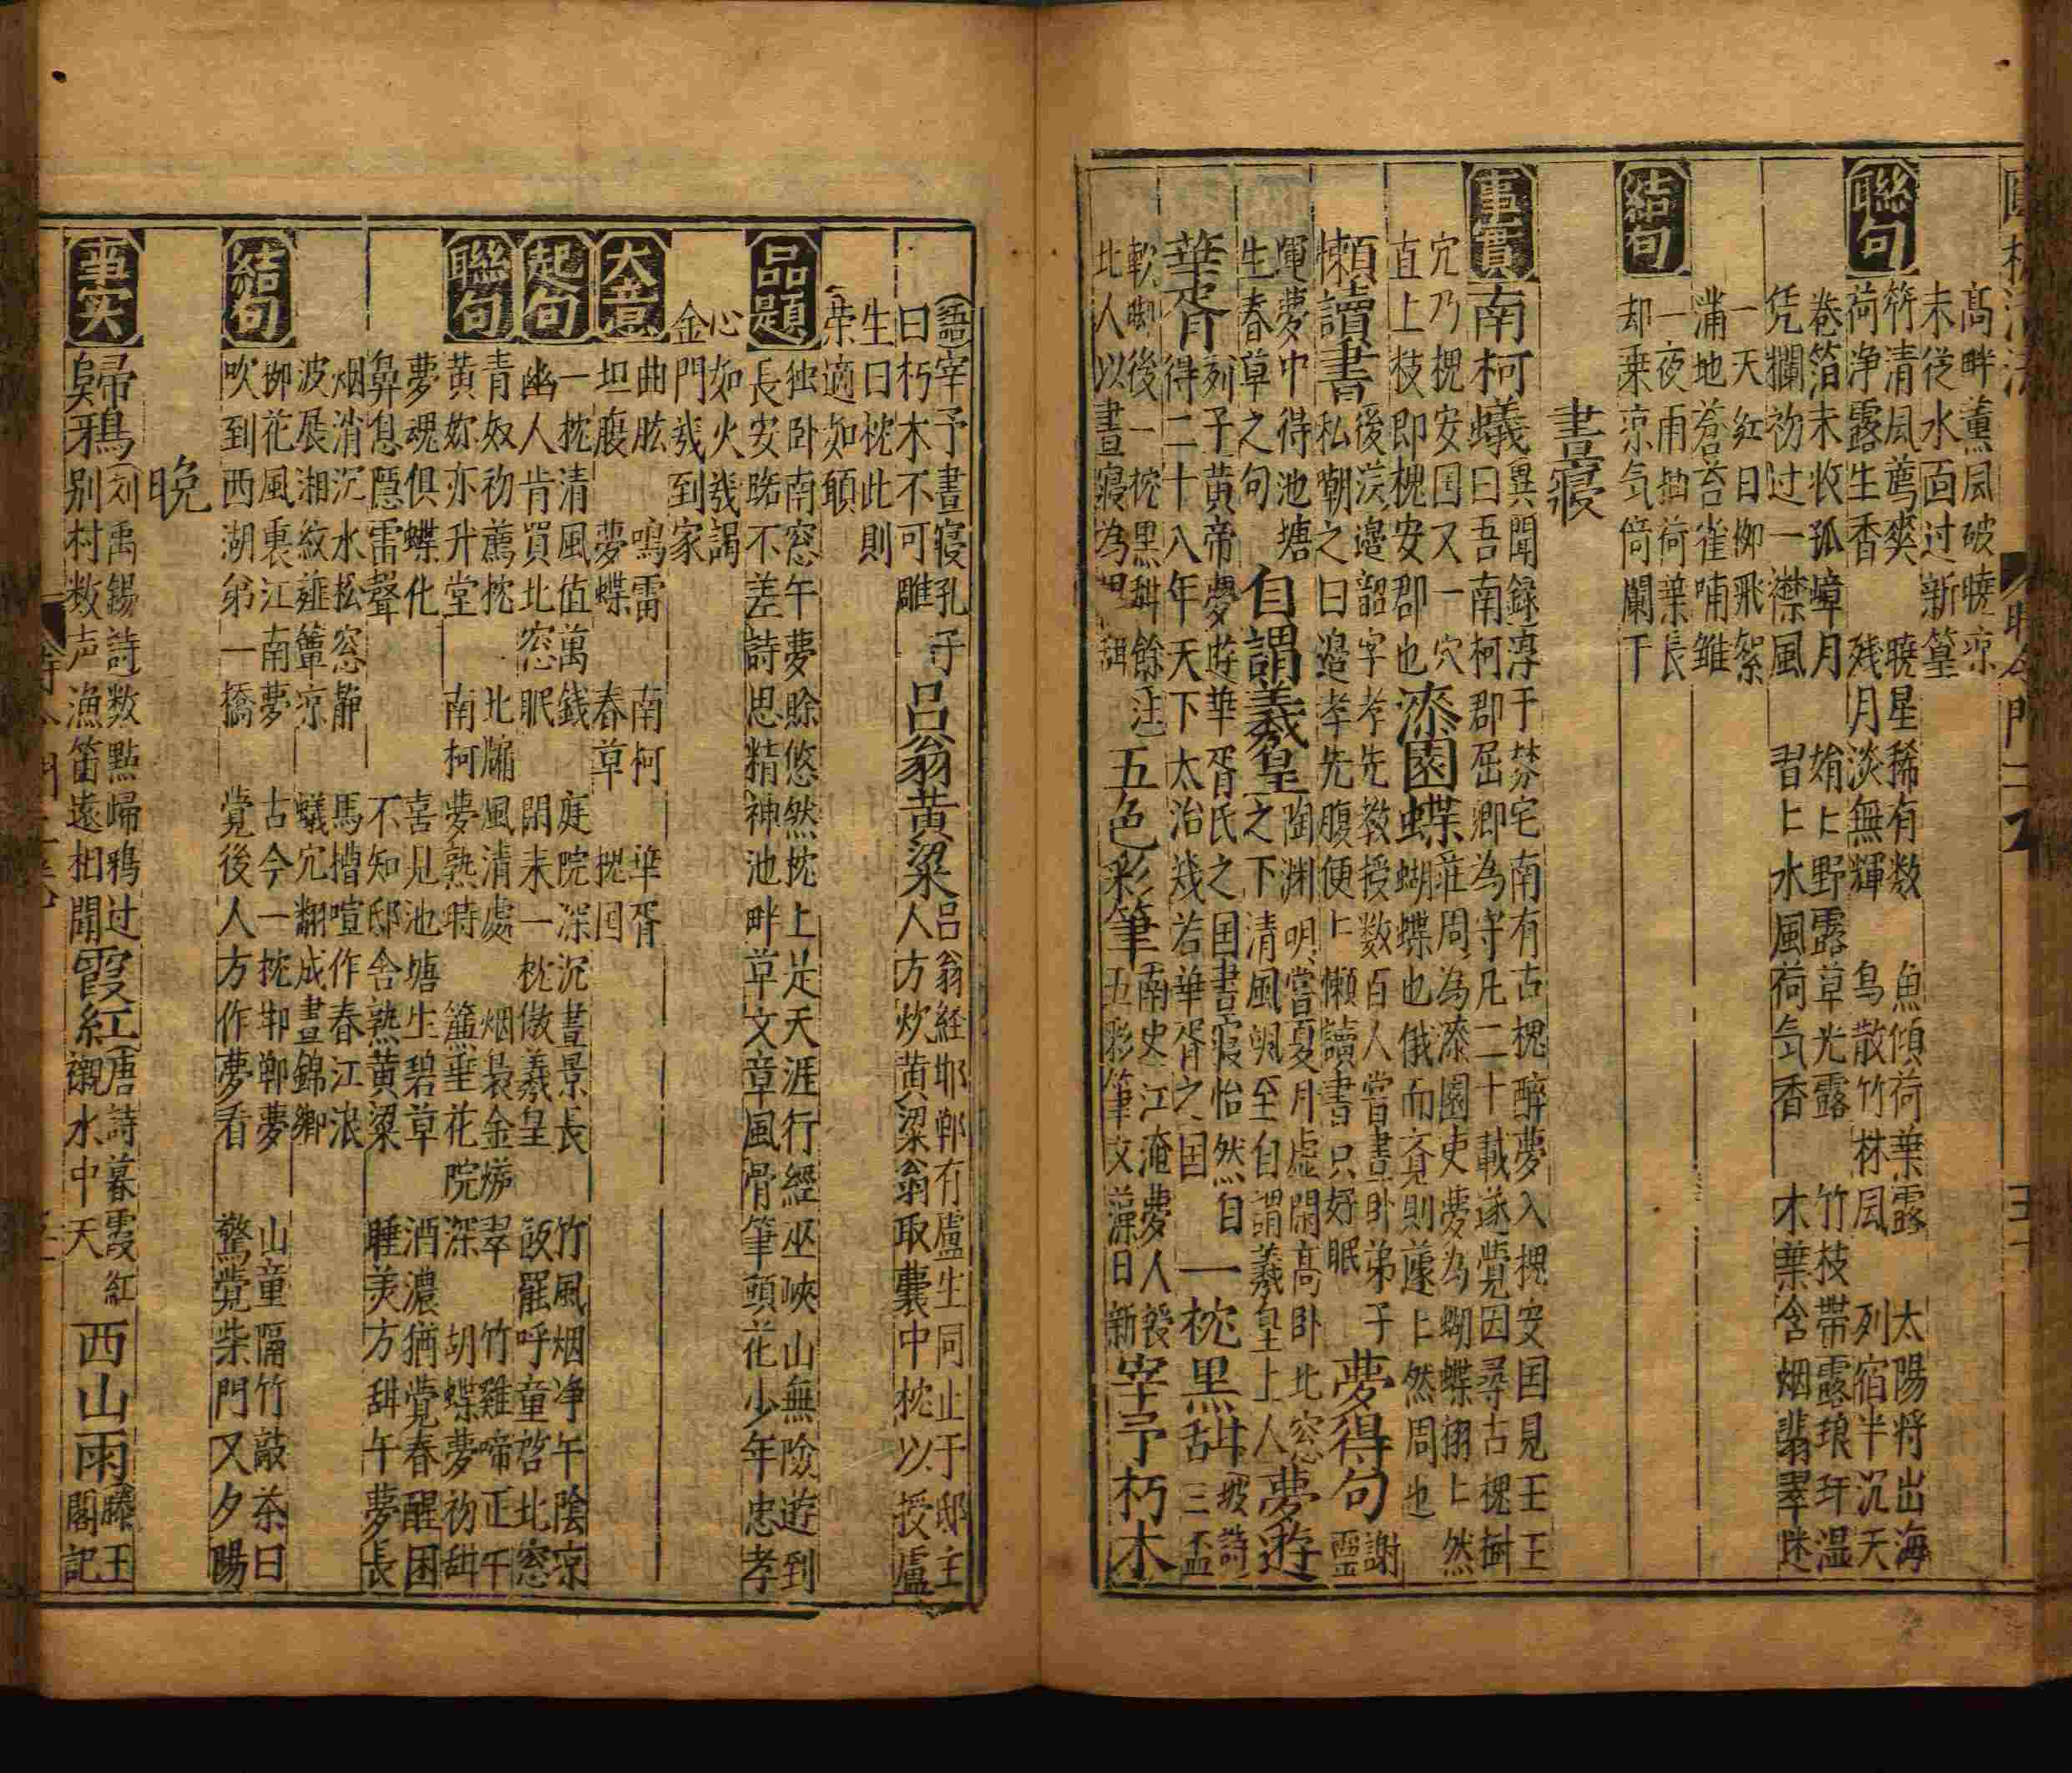 高畔薰風破曉凉
未從水面过新篁
聯句
竹清風薦爽 曉星稀有数 魚傾荷葉露 太陽將出海
荷净露生香 残月淡無輝 鸟散竹林風 列宿半沉天
卷箔未收孤嶂月 娟〻野露草光露 竹枝帶露琅玕湿
凭欄初过一襟風 習〻水風荷气香 木葉含烟翡翠迷
一天紅日柳飛絮
滿地蒼苔雀哺雛
結句
一夜雨抽荷葉長
却乘凉气倚闌干
晝寢
事實 南柯蟻 異聞録淳于棼宅南有古槐醉夢入槐安国見王王曰吾南柯郡屈卿為守凡二十載遂觉因尋古槐樹
穴乃槐安国又一穴直上枝即槐安郡也 漆園蝶 莊周為漆園吏夢為蝴蝶栩〻然蝴蝶也俄而覔則蘧〻然周也
懶讀書 後漢邊韶字孝先教授数百人嘗晝卧弟子私嘲之曰邊孝先腹便〻懶讀書只好眠 夢得句 謝靈
運夢中得池塘生春草之句 自謂羲皇 陶渊明嘗夏月虛閑高卧北窓之下清風颯至自謂羲皇上人 夢遊
華胥 列子黄帝夢遊華胥氏之国書寢怡然自得二十八年天下太治幾若華胥之国 一枕黑甜 坡詩三盃
軟脚後一枕黑甜餘注北人以晝寢為黑甜 五色彩筆 南史江淹夢人授五彩筆文藻日新 宰予朽木
語宰予晝寢孔子曰朽木不可雕 吕翁黄粱 吕翁経邯鄲有盧生同止于邸主人方炊黄粱翁取囊中枕以授盧
生曰枕此則荣適如願
品題
独卧南窓午夢賒悠然枕上足天涯行經巫峽山無險遊到
長安路不差詩思精神池畔草文章風骨筆頭花少年忠孝
心如火幾謁
金門幾到家
大意
曲肱 鳴雷 南柯 華胥
坦腹 夢蝶 春草 槐国
起句
一枕清風值萬錢 庭院深沉晝景長 竹風烟净午陰凉
幽人肯買北窓眠 閑未一枕傲羲皇 飯罷呼童啓北窓
聯句
青奴初薦枕 北牖風清處 烟裊金猊翠 竹雞啼正午
黄妳亦升堂 南柯夢熟時 簾垂花院深 胡蝶夢初甜
夢魂俱蝶化 喜見池塘生碧草 酒濃猶覺春醒困
鼻息隱雷聲 不知邸舍熟黄粱 睡美方甜午夢長
烟消沉水松窓静 馬槽喧作春江浪
波展湘紋薤簟凉 蟻穴翻成晝錦鄉
結句
柳花風裏江南夢 古今一枕邯鄲夢 山童隔竹敲茶臼
吹到西湖弟一橋 觉後人方作夢看 驚觉柴門又夕陽
晚
事实 歸鴉 刘禹錫詩数點歸鸦过別村数声漁笛遠相聞 霞紅 唐詩暮霞紅襯水中天 西山雨 滕王閣記